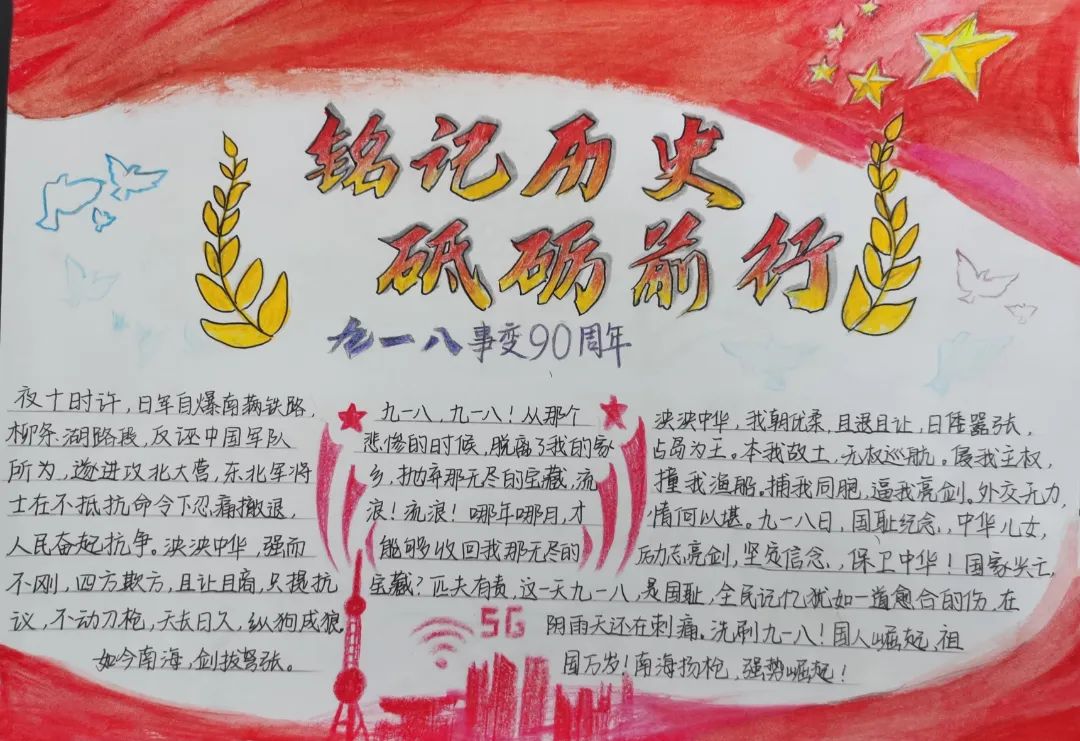 铭记历史
砥砺前行
九一八事变90周年
夜十时许，日军自爆南满铁路，
柳条湖路段，反诬中国军队
所为，遂进攻北大营，东北军将
士在不抵抗命令下忍痛撤退，
人民奋起抗争。泱泱中华，强而
不刚，四方欺方，且让且商，只提抗
议，不动刀枪，天长日久，纵狗成狼。
如今南海，剑拔弩张。
九一八，九一八！从那个
悲惨的时候，脱离了我的家
乡，抛弃那无尽的宝藏，流
浪！流浪！哪年哪月，才
能够收回我那无尽的
宝藏？
泱泱中华，我朝优柔，且退且让，日倭嚣张，
占岛为王。本我故土，无权巡航。我主权，
撞我渔船。捕我同胞，逼我亮剑。外交无力，
情何以堪。九一八日，国耻纪念，中华儿女，
励志亮剑，坚定信念，保卫中华！国家兴亡，
匹夫有责，这一天九一八，是国耻，全民记忆犹如一道愈合的伤，在
阴雨天还在刺痛。洗刷九一八！国人崛起，祖
国万岁！南海扬枪，强势崛起！
5G